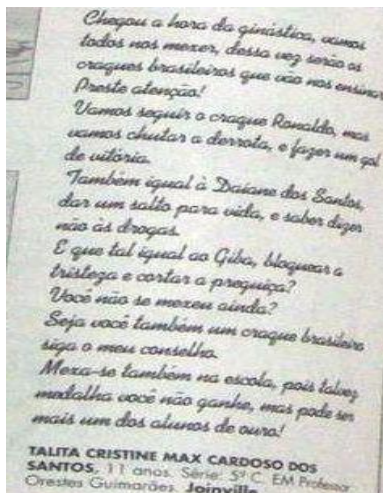 Chegou a hora da ginástica, vamos
todos nos mexer, dessa vez serão os
craques brasileiros que vão nos ensinar
Preste atenção!
Vamos seguir o craque Ronaldo, mas
vamos chutar a derrota, e fazer um gol
de vitória.
Também igual à Daiane dos Santos,
dar um salto para vida, e saber dizer
não às drogas.
E que tal igual ao Giba, bloquear a
tristeza e cortar a preguiça?
Você não se mexeu ainda?
Seja você também um craque brasileiro
siga o meu conselho.
Mexa-se também na escola, pois talvez
medalha você não ganhe, mas pode ser
mais um dos alunos de ouro!
TALITA CRISTINE MAX CARDOSO DOS
SANTOS, 11 anos. Série: 5ª C. EM Professor
Orestes Guimarães. Joinville